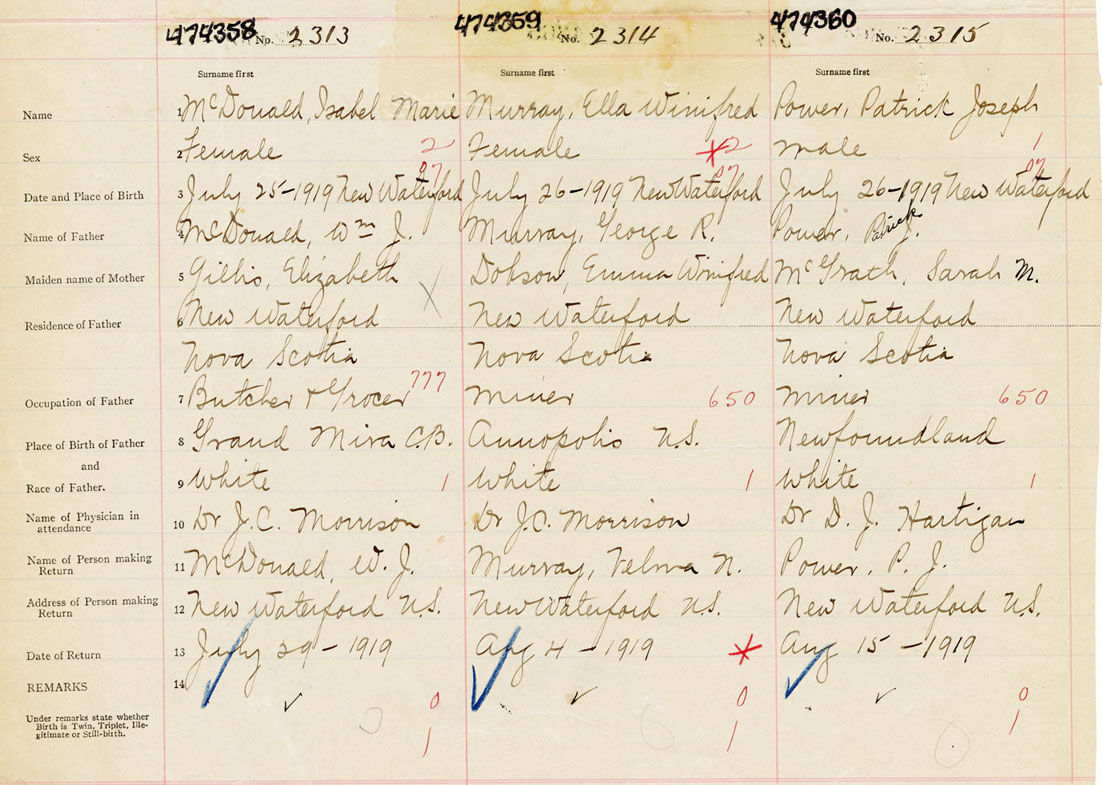 474358 No. 2313 474359 No. 2314 474360 No. 2315
Surname first Surname first Surname first
Name 1 McDonald, Isabel Marie Murray, Ella Winifred Power, Patrick Joseph
Sex 2 Female 2 Female 2 male 1
07 07 07
Date and Place of Birth 3 July 25-1919 New Waterford July 26-1919 New Waterford July 26-1919 New Waterford
Name of Father 4 McDonald, Wm J. Murray, George R. Power, Patrick J.
Maiden name of Mother 5 Gillis, Elizabeth X Dobson, Emma Winifred McGrath, Sarah M.
Residence of Father 6 New Waterford New Waterford New Waterford
Nova Scotia Nova Scotia Nova Scotia
Occupation of Father 7 Butcher & Grocer 777 miner 650 miner 650
Place of Birth of Father 8 Grand Mira C.B. Annopolis N.S. Newfoundland
and
Race of Father. 9 White 1 White 1 White 1
Name of Physician in attendance 10 Dr J.C. Morrison Dr J.C. Morrison Dr D. J. Hartigan
Name of Person making Return 11 McDonald, W. J. Murray, Velma N. Power, P. J.
Address of Person making Return 12 New Waterford N.S. New Waterford N.S. New Waterford N.S.
Date of Return 13 July 29-1919 Aug 4-1919 Aug 15-1919
REMARKS 14
0 0 0
Under remarks state whether
Birth is Twin, Triplet, Ille-
gitimate or Still-birth.
1 1 1